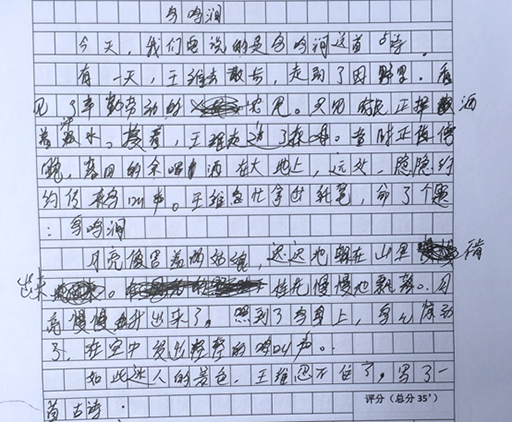 鸟鸣涧
今天,我们要说的是鸟鸣涧这首古诗。
有一天,王维去散步,走到了田野里。看
见了辛勤劳动的农民。只见农民正挥洒
着汗水。接着,王维走进了。当时正接近傍
晚,落日的余晖洒在大地上,远处,隐隐约
约传来鸟叫声。王维急忙拿出纸笔,命了个题
:鸟鸣涧
月亮像害羞的姑娘,迟迟地躲在山里不肯
出来。桂花慢慢地飘落。月
亮慢慢地升出来了,照到了鸟身上,鸟儿惊动
了,在空中发出阵阵的鸣叫声。
如此迷人的景色,王维忍不住了,写了一
首古诗:
评分(总分35')